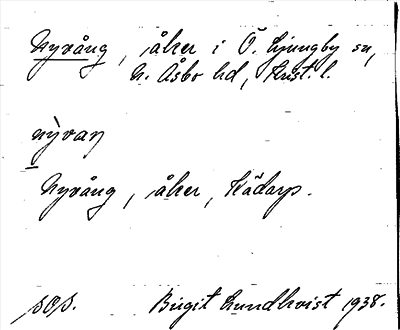 Nyvång, åker i Ö. Ljungby sn,
N. Åsbo hd, Krist. l.
nỳvaŋ
Nyvång, åker, Kädarp.
sos. Birgit Lundkvist 1938.